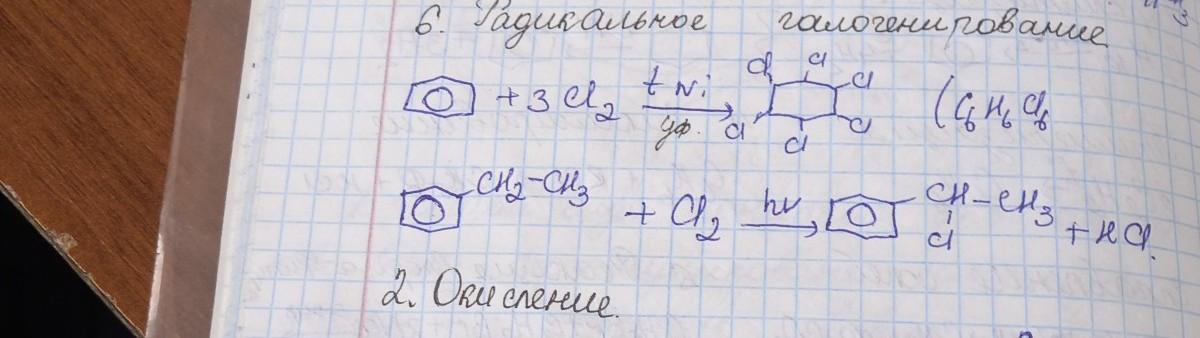 6. Радикальное галогенирование
+ 3 Cl2 t Ni уф. Cl Cl Cl Cl Cl Cl (C6H6Cl6
CH2-CH3 + Cl2 hν CH-CH3 Cl + HCl.
2. Окисление.